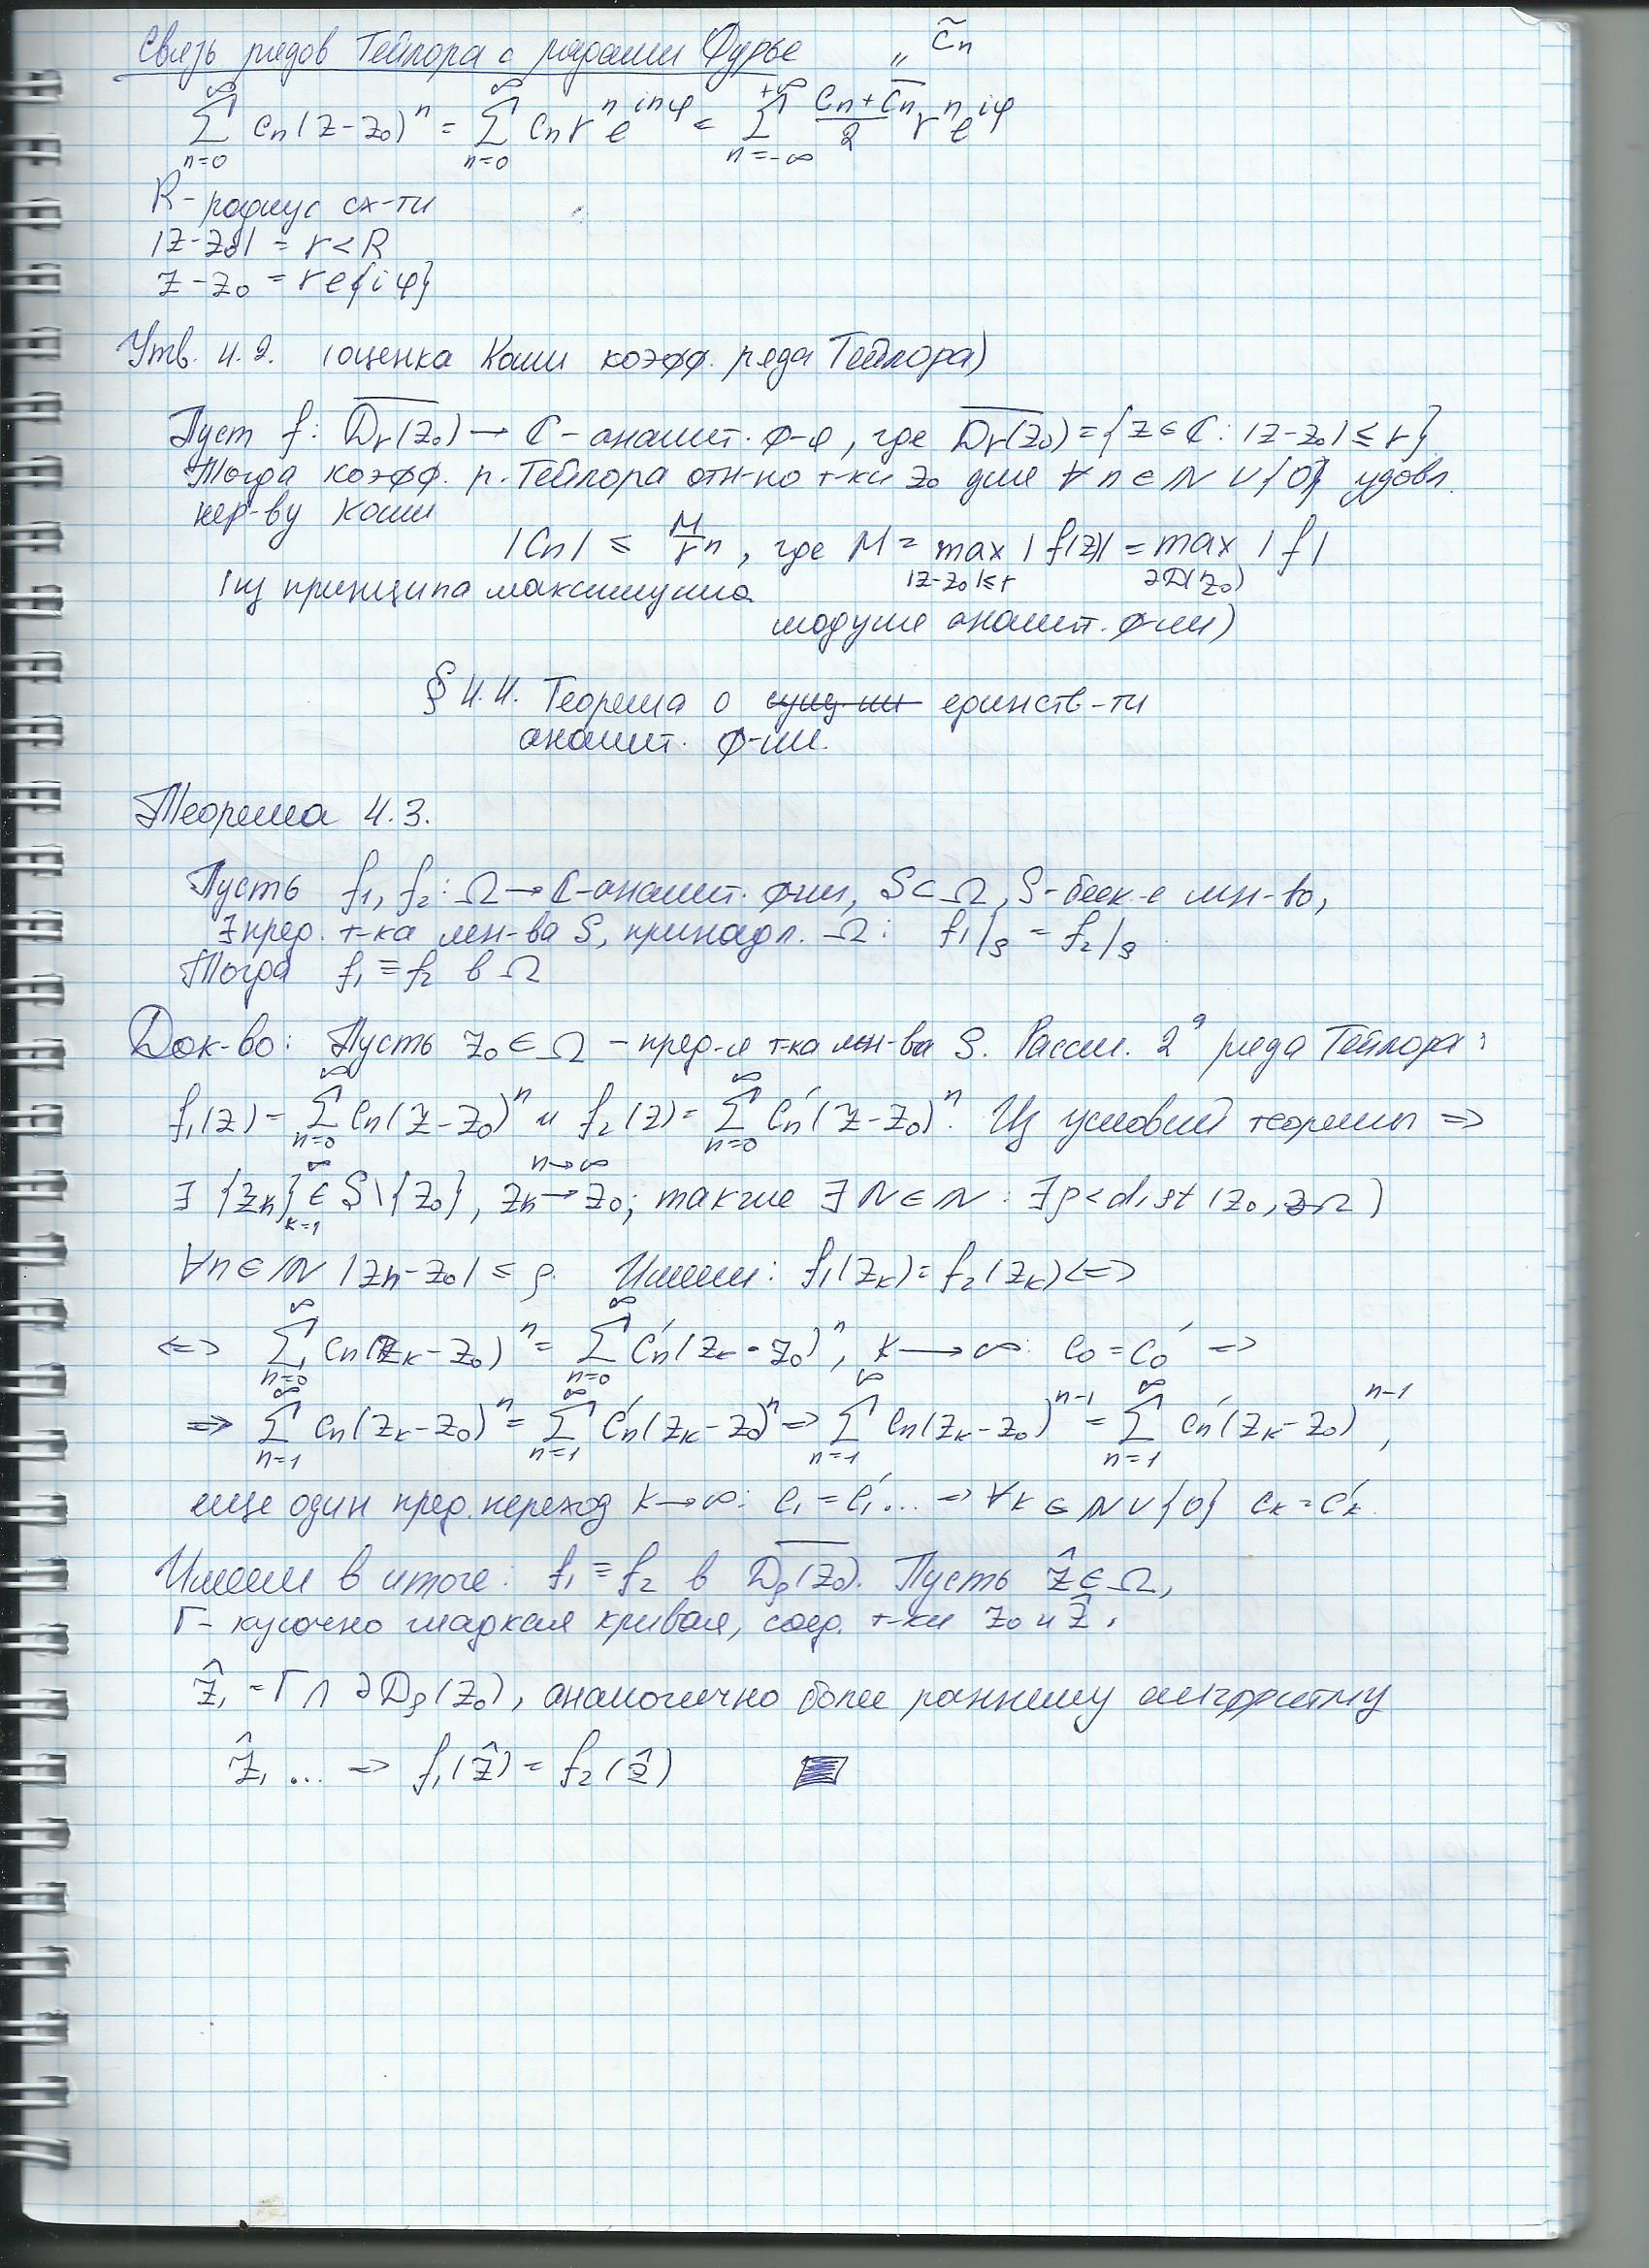 Связь рядов Тейлора с рядами Фурье " c̃n
∑_{n=0}^{∞} cn(z-z₀)^n = ∑_{n=0}^{∞} cn r^n e^{inφ} = ∑_{n=-∞}^{+∞} (cn + c̅n)/2 r^n e^{iφ}
R - радиус сх-ти
|z-z₀| = r < R
z-z₀ = re{iφ}
Утв. 4.2. (оценка Коши коэфф. ряда Тейлора)
Пуст f: \overline{Dr(z₀)} → ℂ - аналит. ф-я, где \overline{Dr(z₀)} = {z ∈ ℂ: |z-z₀| ≤ r}
Тогда коэфф. р. Тейлора отн-но т-ки z₀ для ∀ n ∈ ℕ ∪ {0} удовл.
нер-ву Коши
|Cn| ≤ M/r^n, где M = max_{|z-z₀|≤r} |f(z)| = max_{∂D(z₀)} |f|
(из принципа максимума
модуля аналит. ф-ии)
§ 4.4. Теорема о единств-ти
аналит. ф-ии.
Теорема 4.3.
Пусть f₁, f₂: Ω → ℂ - аналит. ф-ии, S ⊂ Ω, S - беск-е мн-во,
∃ пред. т-ка мн-ва S, принадл. Ω: f₁|_S = f₂|_S
Тогда f₁ ≡ f₂ в Ω
Док-во: Пусть z₀ ∈ Ω - пред-я т-ка мн-ва S. Рассм. 2^а ряда Тейлора:
f₁(z) = ∑_{n=0}^{∞} cn(z-z₀)^n и f₂(z) = ∑_{n=0}^{∞} c'n(z-z₀)^n. Из условий теоремы =>
∃ {zk}_{k=1}^{∞} ∈ S\{z₀}, zn →^{n→∞} z₀; также ∃ N ∈ ℕ: ∃ρ < dist(z₀, ∂Ω)
∀n ∈ ℕ |zn-z₀| ≤ ρ. Имеем: f₁(zk) = f₂(zk) <=>
<=> ∑_{n=0}^{∞} cn(zk-z₀)^n = ∑_{n=0}^{∞} c'n(zk-z₀)^n, k → ∞: c₀ = c'₀ =>
=> ∑_{n=1}^{∞} cn(zk-z₀)^n = ∑_{n=1}^{∞} c'n(zk-z₀)^n => ∑_{n=1}^{∞} cn(zk-z₀)^{n-1} = ∑_{n=1}^{∞} c'n(zk-z₀)^{n-1},
еще один пред. переход k → ∞: c₁ = c'₁ ... => ∀k ∈ ℕ ∪ {0} ck = c'k.
Имеем в итоге: f₁ ≡ f₂ в \overline{Dρ(z₀)}. Пусть ẑ ∈ Ω,
Г - кусочно гладкая кривая, соед. т-ки z₀ и ẑ.
ẑ₁ = Г ∩ ∂Dρ(z₀), аналогично более раннему алгоритму
ẑ₁ ... => f₁(ẑ) = f₂(ẑ)